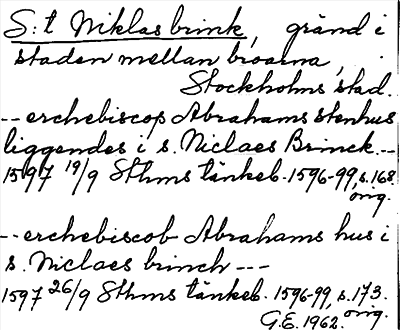 S:t Niklas brink, gränd i
staden mellan broarna,
Stockholms stad.
-- erchebiscops Abrahams stenhus
liggendes i s. Niclaes Brinck. --
1597 19/9 Sthms tänkeb. 1596-99, s. 168
orig.
-- erchebiscob Abrahams hus i
s. Niclaes brinch ---
1597 26/9 Sthms tänkeb. 1596-99, s. 173.
orig.
G.E. 1962.